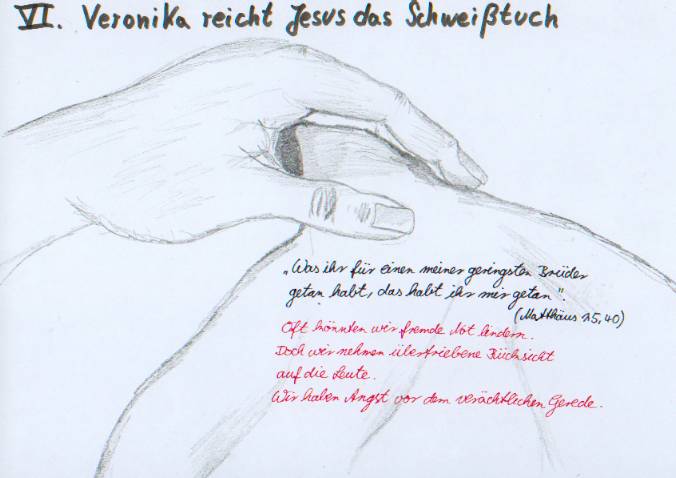 VI. Veronika reicht Jesus das Schweißtuch
„Was ihr für einen meiner geringsten Brüder
getan habt, das habt ihr mir getan".
(Matthäus 25,40)
Oft könnten wir fremde Not lindern.
Doch wir nehmen übertriebene Rücksicht
auf die Leute.
Wir haben Angst vor dem verächtlichen Gerede.